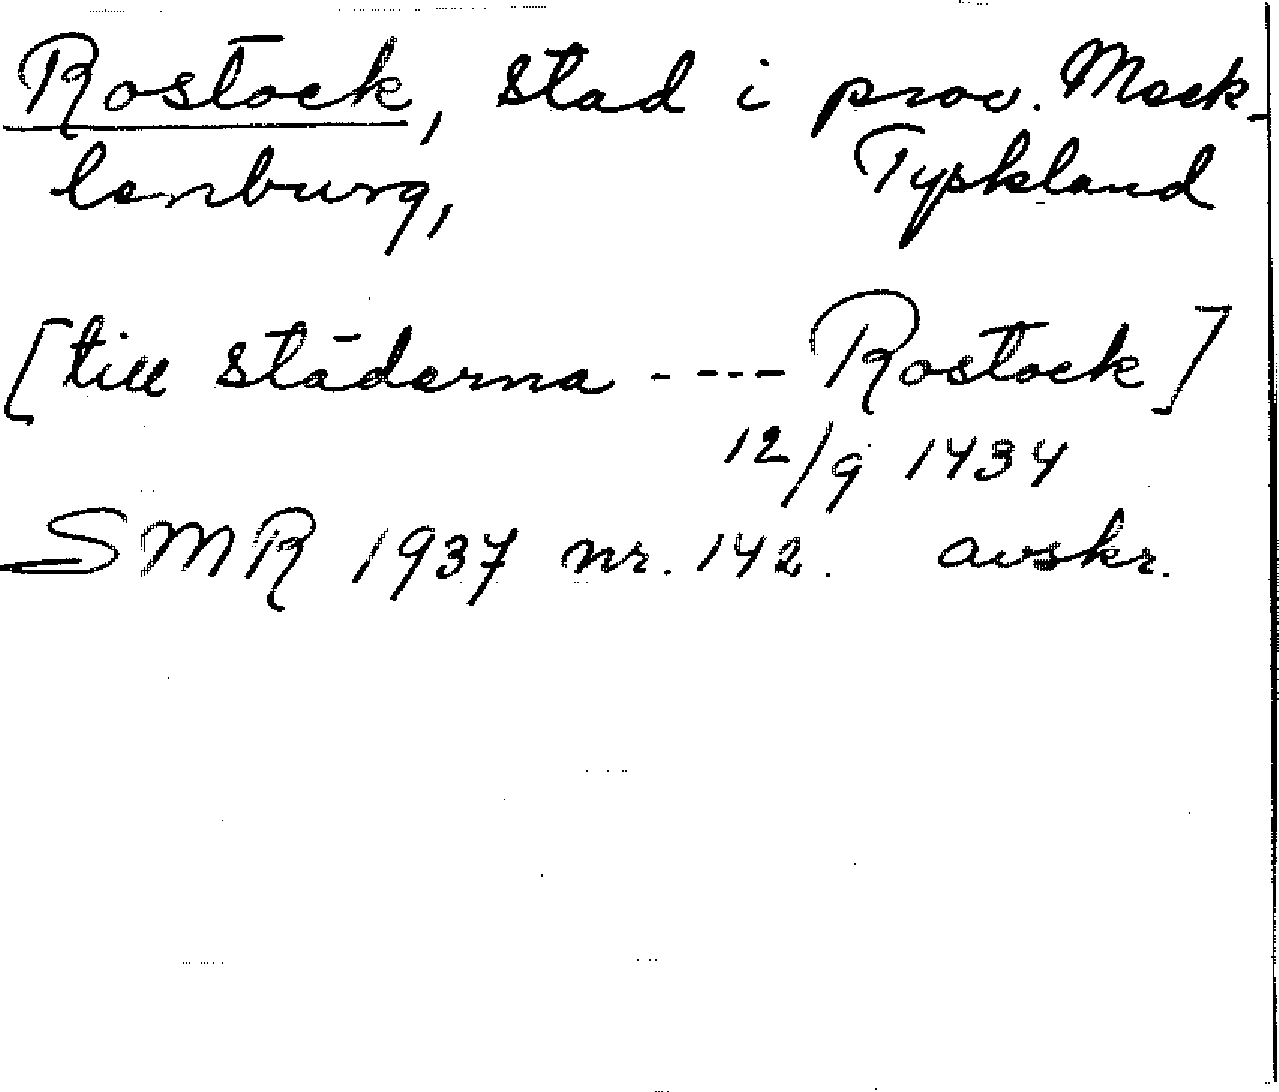 Rostock, stad i prov. Meck-
lenburg, Tyskland
[till städerna ---- Rostock]
12/9 1434
SMR 1937 nr. 142. avskr.